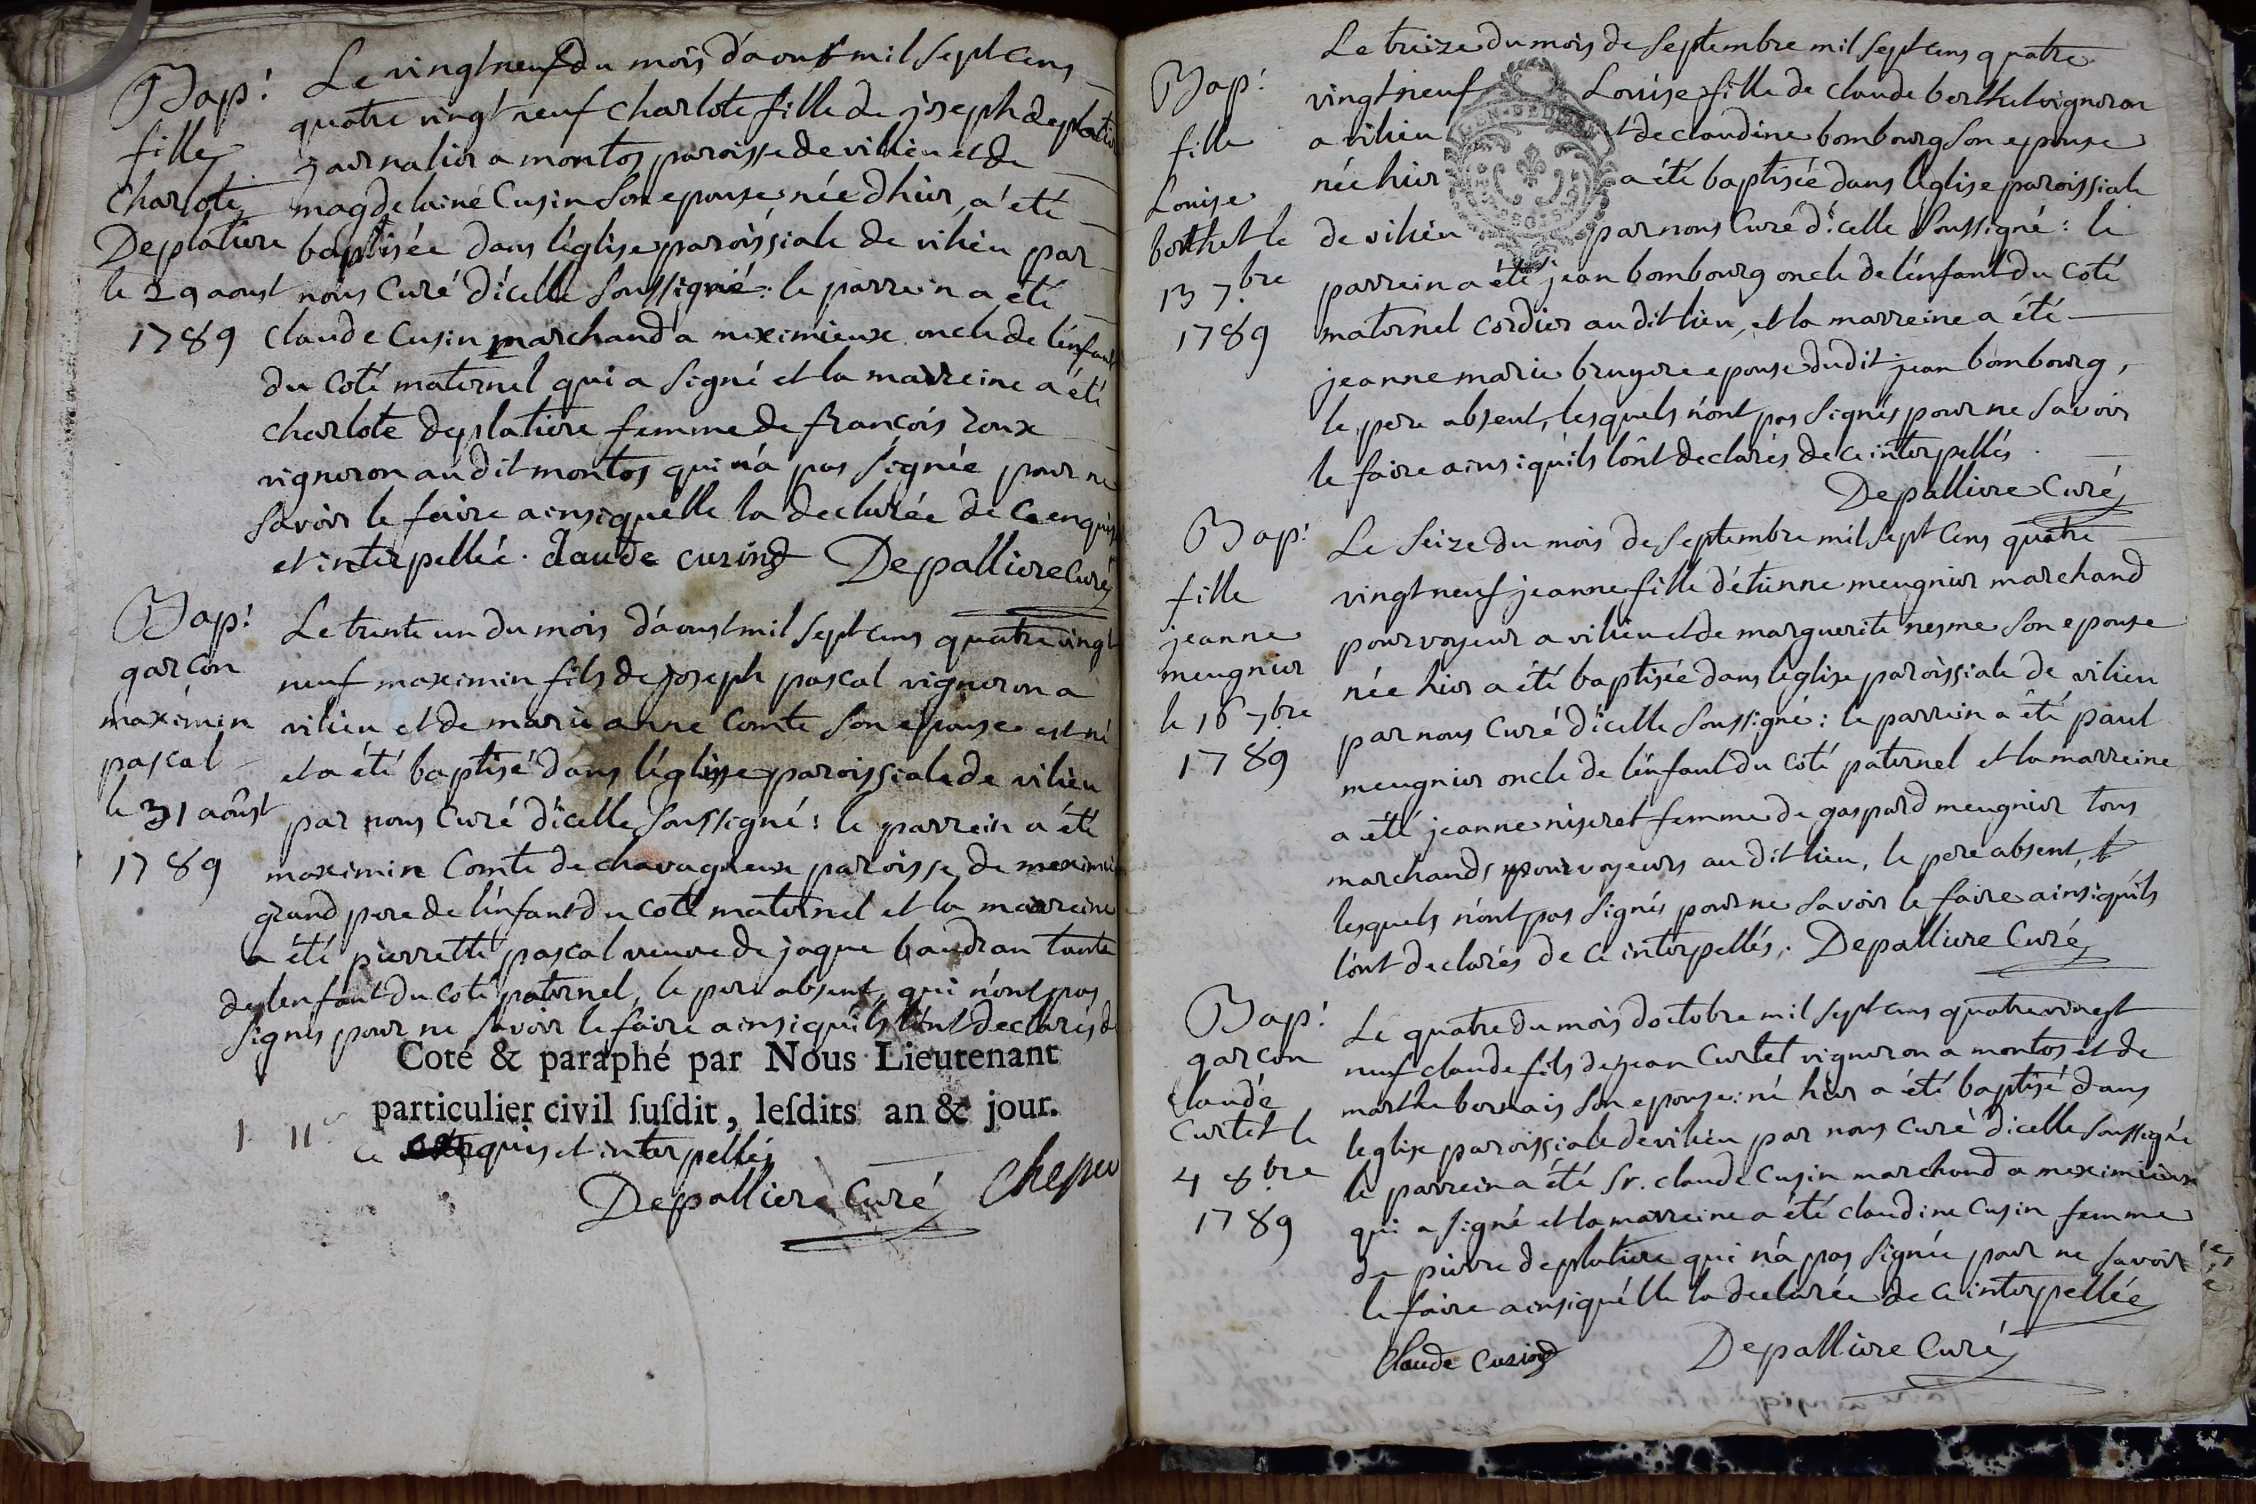 Bap.t
fille
Charlote
Deplatiere
le 29 aoust
1789
Le vingt neuf du mois d'aoust mil sept cens
quatre vingt neuf charlote fille de joseph deplatiere
journalier a montos paroisse de villieu et de
magdelaine Cusin son epouse née d'hier, a été
baptisée dans l'église paroissiale de vilieu par
nous Curé d'icelle soussigné: le parrein a été
Claude Cusin marchand a meximieux oncle de l'enfant
du coté maternel qui a signé et la marreine a été
charlote deplatiere femme de françois roux
vigneron audit montos qui n'a pas signée pour ne
savoir le faire ainsi quelle la declarée de ce enquise
et interpellée. claude cusin Depalliere Curé
Bap.t
garçon
maximin
pascal
le 31 aôust
1789
Le trente un du mois d'aoust mil sept cens quatre vingt
neuf maximin fils de joseph pascal vigneron a
vilieu et de marie anne Comte son epouse est né
et a été baptisé dans l'église paroissiale de vilieu
par nous Curé d'icelle soussigné: le parrein a été
maximin Comte de chavagneux paroisse de meximieux
grand pere de l'enfant du coté maternel et la marreine
a été pierrette pascal veuve de jaque baudran tante
de l'enfant du coté paternel, le pere absent, qui n'ont pas
signés pour ne savoir le faire ainsi qu'ils l'ont declarés de
Coté & paraphé par Nous Lieutenant
particulier civil susdit, lesdits an & jour.
ce enquis et interpellés
Depalliere Curé
Bap.t
fille
Louise
berthet le
13 7.bre
1789
Le treize du mois de septembre mil sept cens quatre
vingt neuf Louise fille de claude berthet vigneron
a vilieu et de claudine bombourg son epouse
née hier a été baptisée dans l'église paroissiale
de vilieu par nous Curé d'icelle soussigné: le
parrein a été jean bombourg oncle de l'enfant du coté
maternel cordier au dit lieu, et la marreine a été
jeanne marie bruyere epouse dudit jean bombourg,
le pere absent, lesquels n'ont pas signés pour ne savoir
le faire ainsi qu'ils l'ont declarés de ce interpellés.
Depalliere Curé
Bap.t
fille
jeanne
meugnier
le 16 7bre
1789
Le seize du mois de septembre mil sept cens quatre
vingt neuf jeanne fille d'étienne meugnier marchand
pourvoyeur a vilieu et de marguerite nesme son epouse
née hier a été baptisée dans l'église paroissiale de vilieu
par nous Curé d'icelle soussigné: le parrein a été paul
meugnier oncle de l'enfant du coté paternel et la marreine
a été jeanne niseret femme de gaspard meugnier tous
marchands pourvoyeurs au dit lieu, le pere absent,
lesquels n'ont pas signés pour ne savoir le faire ainsi qu'ils
l'ont declarés de ce interpellés; Depalliere Curé
Bap.t
garçon
Claude
Curtet le
4 8.bre
1789
Le quatre du mois d'octobre mil sept cens quatre vingt
neuf claude fils de jean Curtet vigneron a montos et de
marthe bernais son epouse: né hier a été baptisé dans
l'eglise paroissiale de vilieu par nous Curé d'icelle soussigné
le parrein a été Sr. claude Cusin marchand a meximieux
qui a signé et la marreine a été claudine Cusin femme
de pierre deplatiere qui n'a pas signée pour ne savoir
le faire ainsi qu'elle la declarée de ce interpellée
Claude Cusin Depalliere Curé